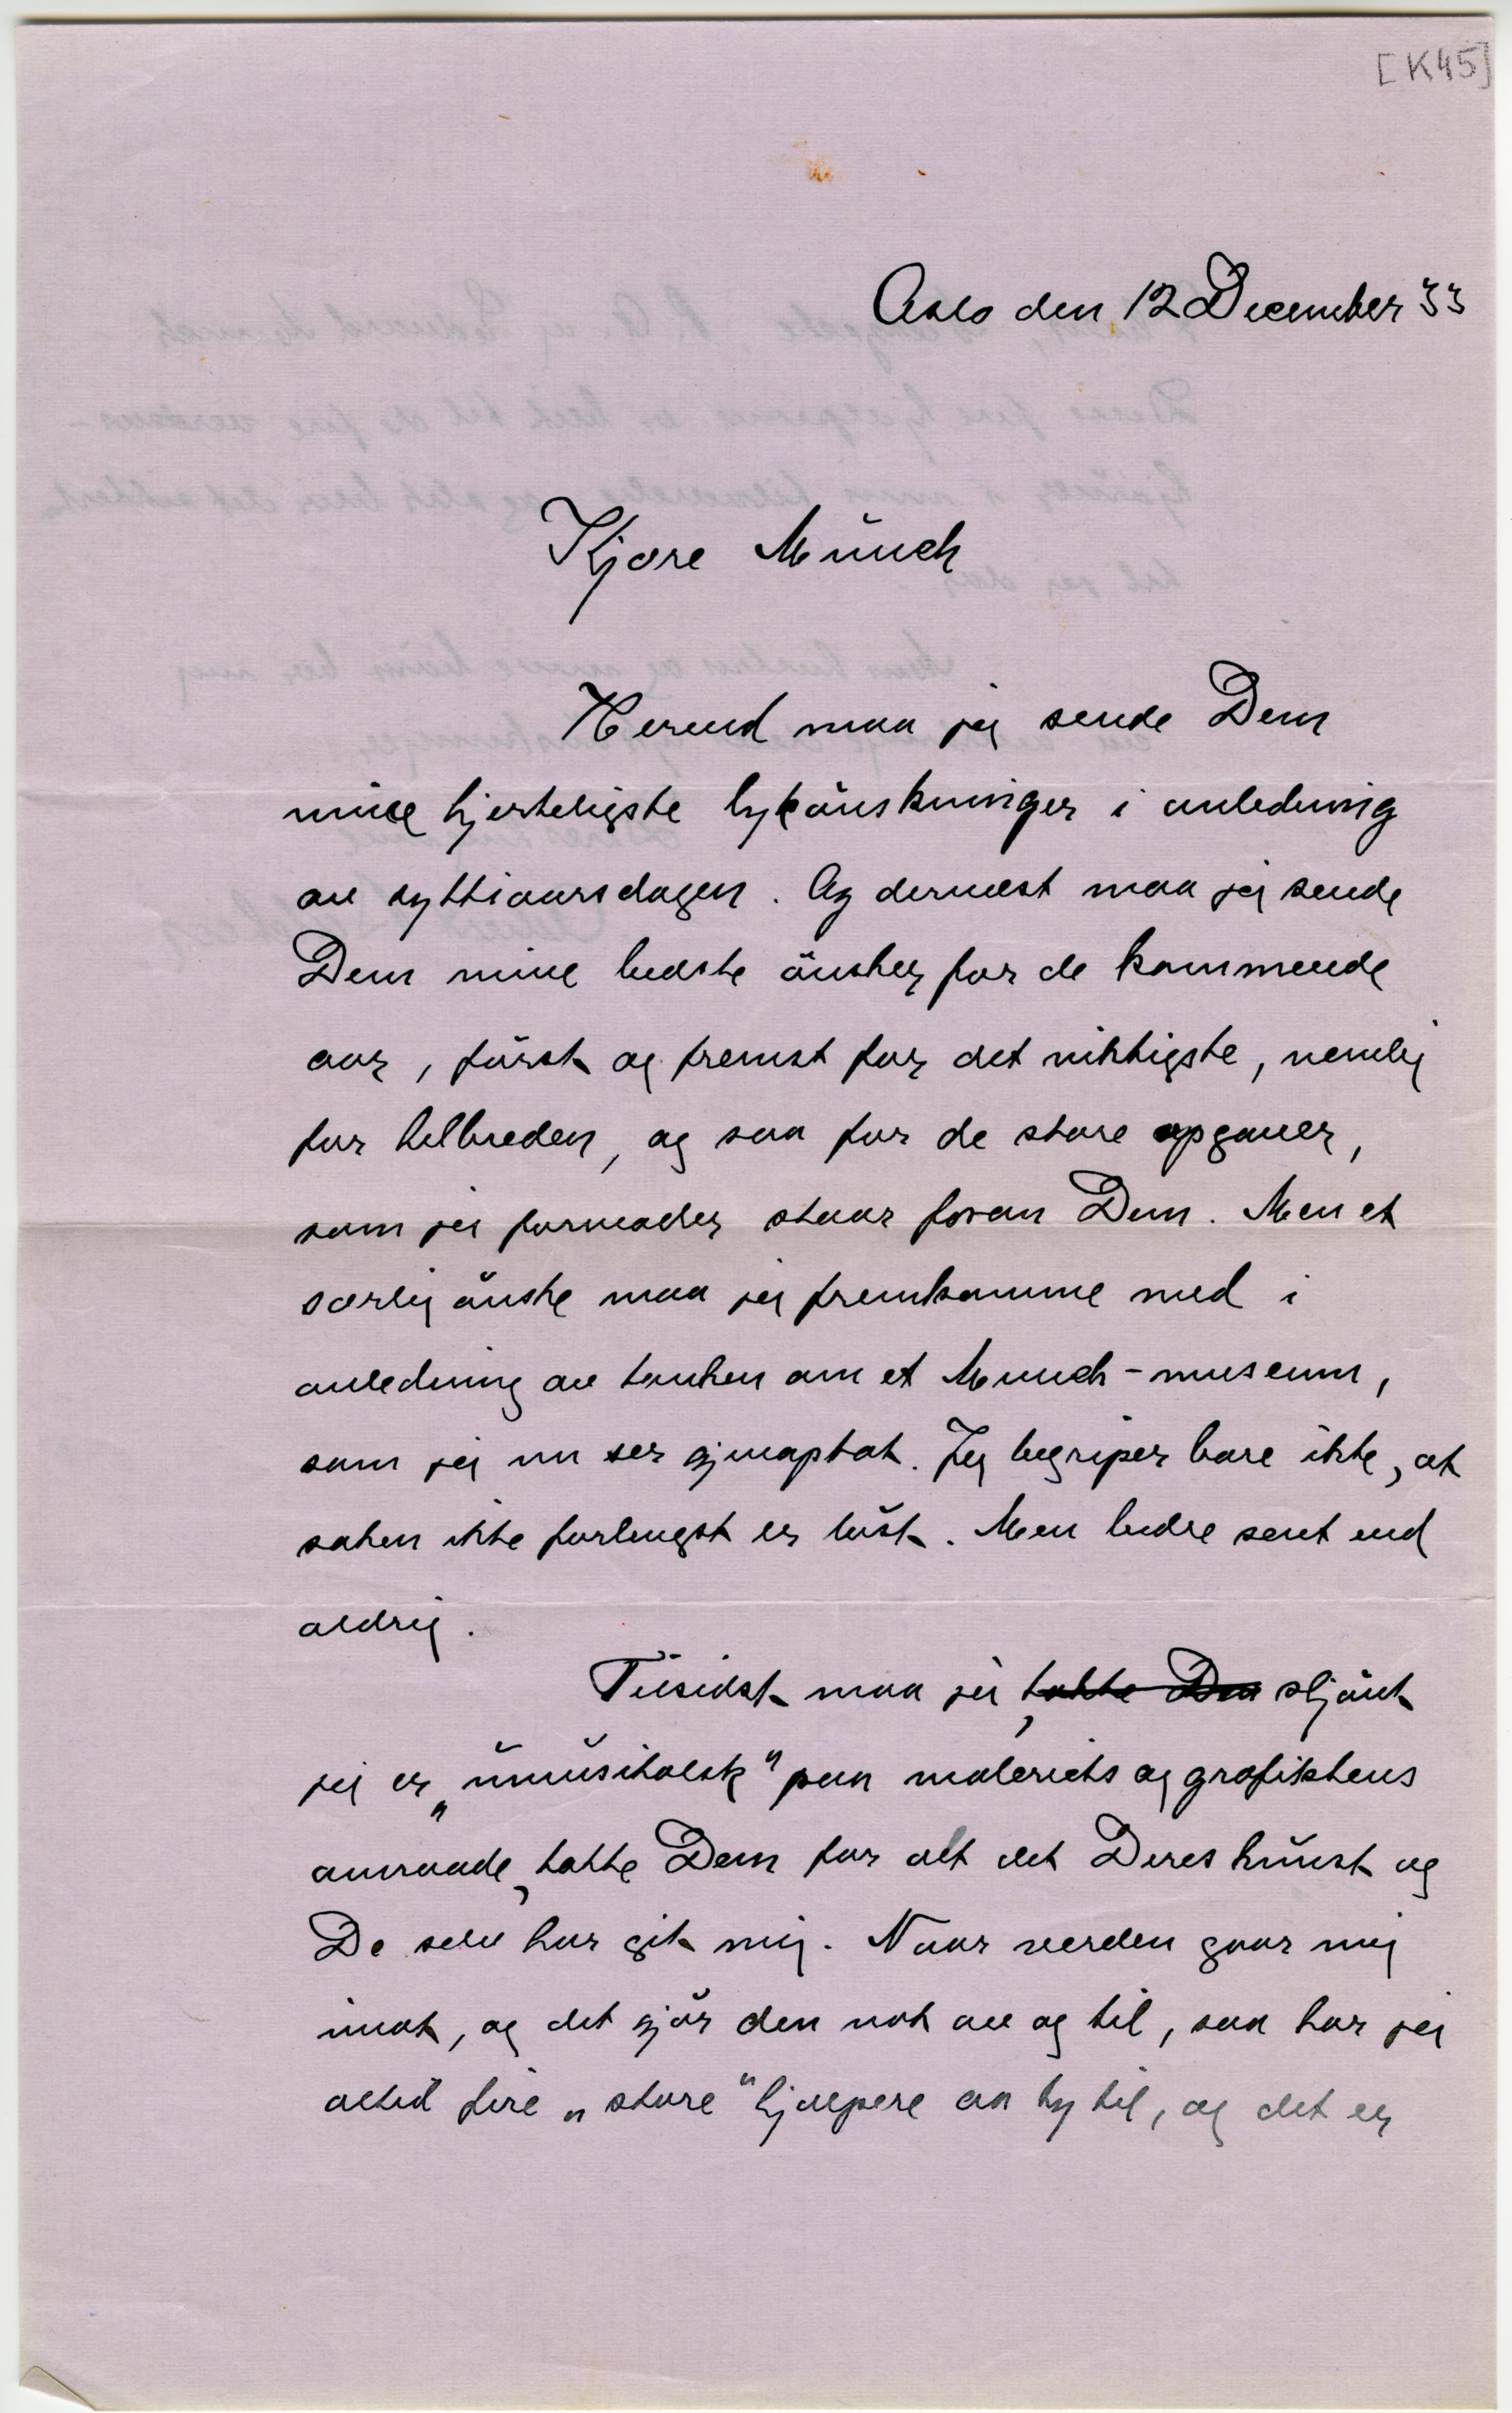 [K45]
Oslo den 12 December 33
Kjære Münch
Herved maa jeg sende Dem
mine hjerteligste lykönskninger i anledning
av syttiaarsdagen. Og dernæst maa jeg sende
Dem mine bedste önsker for de kommende
aar, först og fremst for det viktigste, nemlig
for helbreden, og saa for de store opgaver,
som jeg formoder staar foran Dem. Men et
særlig önske maa jeg fremkomme med i
anledning av tanken om et Munch-museum,
som jeg nu ser gjenoptat. Jeg begriper bare ikke, at
saken ikke forlengst er löst. Men bedre sent end
aldrig.
Tilsidst maa jeg, takke Dem skjönt
jeg er „ümüsikalsk" paa maleriets og grafikkens
omraade, takke Dem for alt det Deres künst og
De selv har git mig. Naar verden gaar mig
imot, og det gjör den nok av og til, saa har jeg
altid fire „store" hjælpere aa ty til, og det er